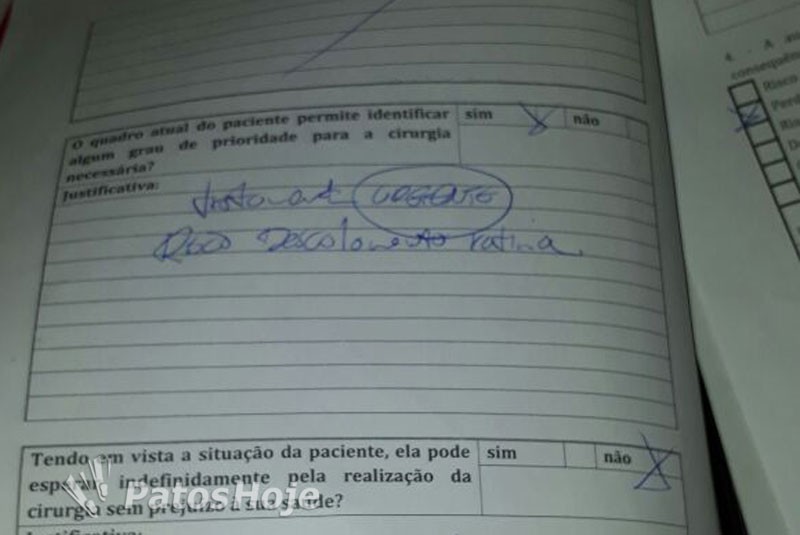 O quadro atual do paciente permite identificar
algum grau de prioridade para a cirurgia
necessária?
sim X não
Justificativa:
tratamento URGENTE
Risco Descolamento retina.
Tendo em vista a situação da paciente, ela pode
esperar indefinidamente pela realização da
cirurgia sem prejuízo à sua saúde?
sim não X
Justificativa:
PatosHoje
4. A au
consequên
Risco
Perd
Ris